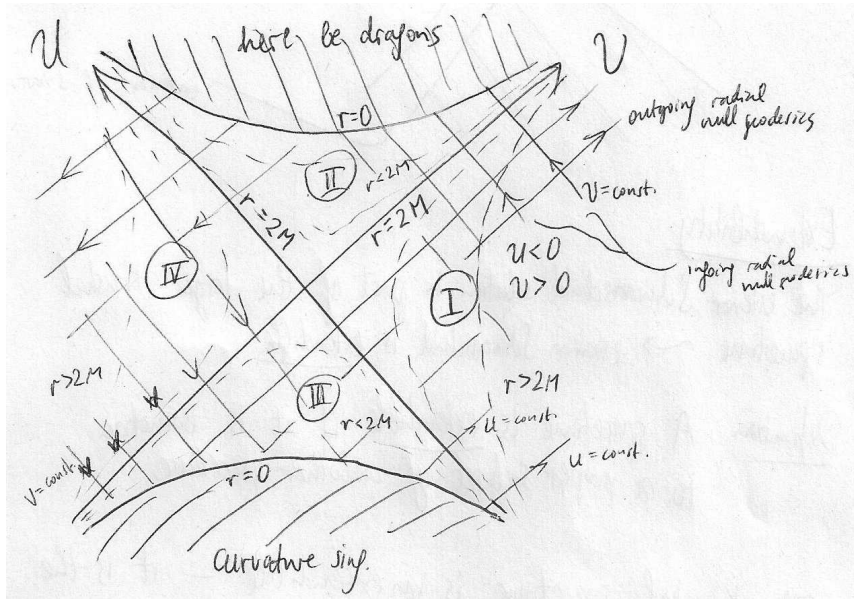 U
here be dragons
V
r=0
outgoing radial
null geodesics
II
r<2M
V=const.
r=2M
r=2M
U<0
V>0
ingoing radial
null geodesics
IV
I
r>2M
III
r<2M
r>2M
U=const.
U=const.
V=const.
r=0
Curvature sing.